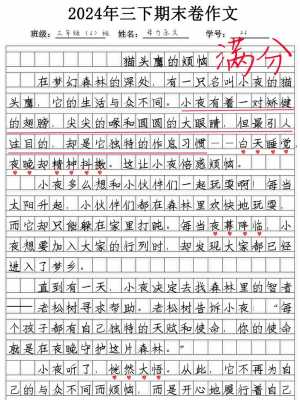 2024年三下期末卷作文
班级：三年级（2）班 姓名： 学号：
满分
猫头鹰的烦恼
在梦幻森林的深处，有一只名叫小夜的猫
头鹰，它的生活与众不同。小夜有着一对矫健
的翅膀，尖尖的喙和圆圆的大眼睛，但最引人
注目的，却是它独特的作息习惯——白天睡觉，
夜晚却精神抖擞。这让小夜倍感烦恼。
小夜多么想和小伙伴们一起玩耍啊！每当
太阳升起，小伙伴们都在森林里欢快地玩耍，
而它却只能躲在家里打盹。每当夜幕降临，小
夜想要加入大家的行列时，却发现大家都已经
进入了梦乡。
直到有一天，小夜决定去找森林里的智者
——老松树寻求帮助。老松树告诉小夜：“每
个孩子都有自己独特的天赋和使命，你的使命，
就是在夜晚守护这片森林。”
小夜听了，恍然大悟。从此，它不再为自
己的与众不同而烦恼，而是开心地履行着自己